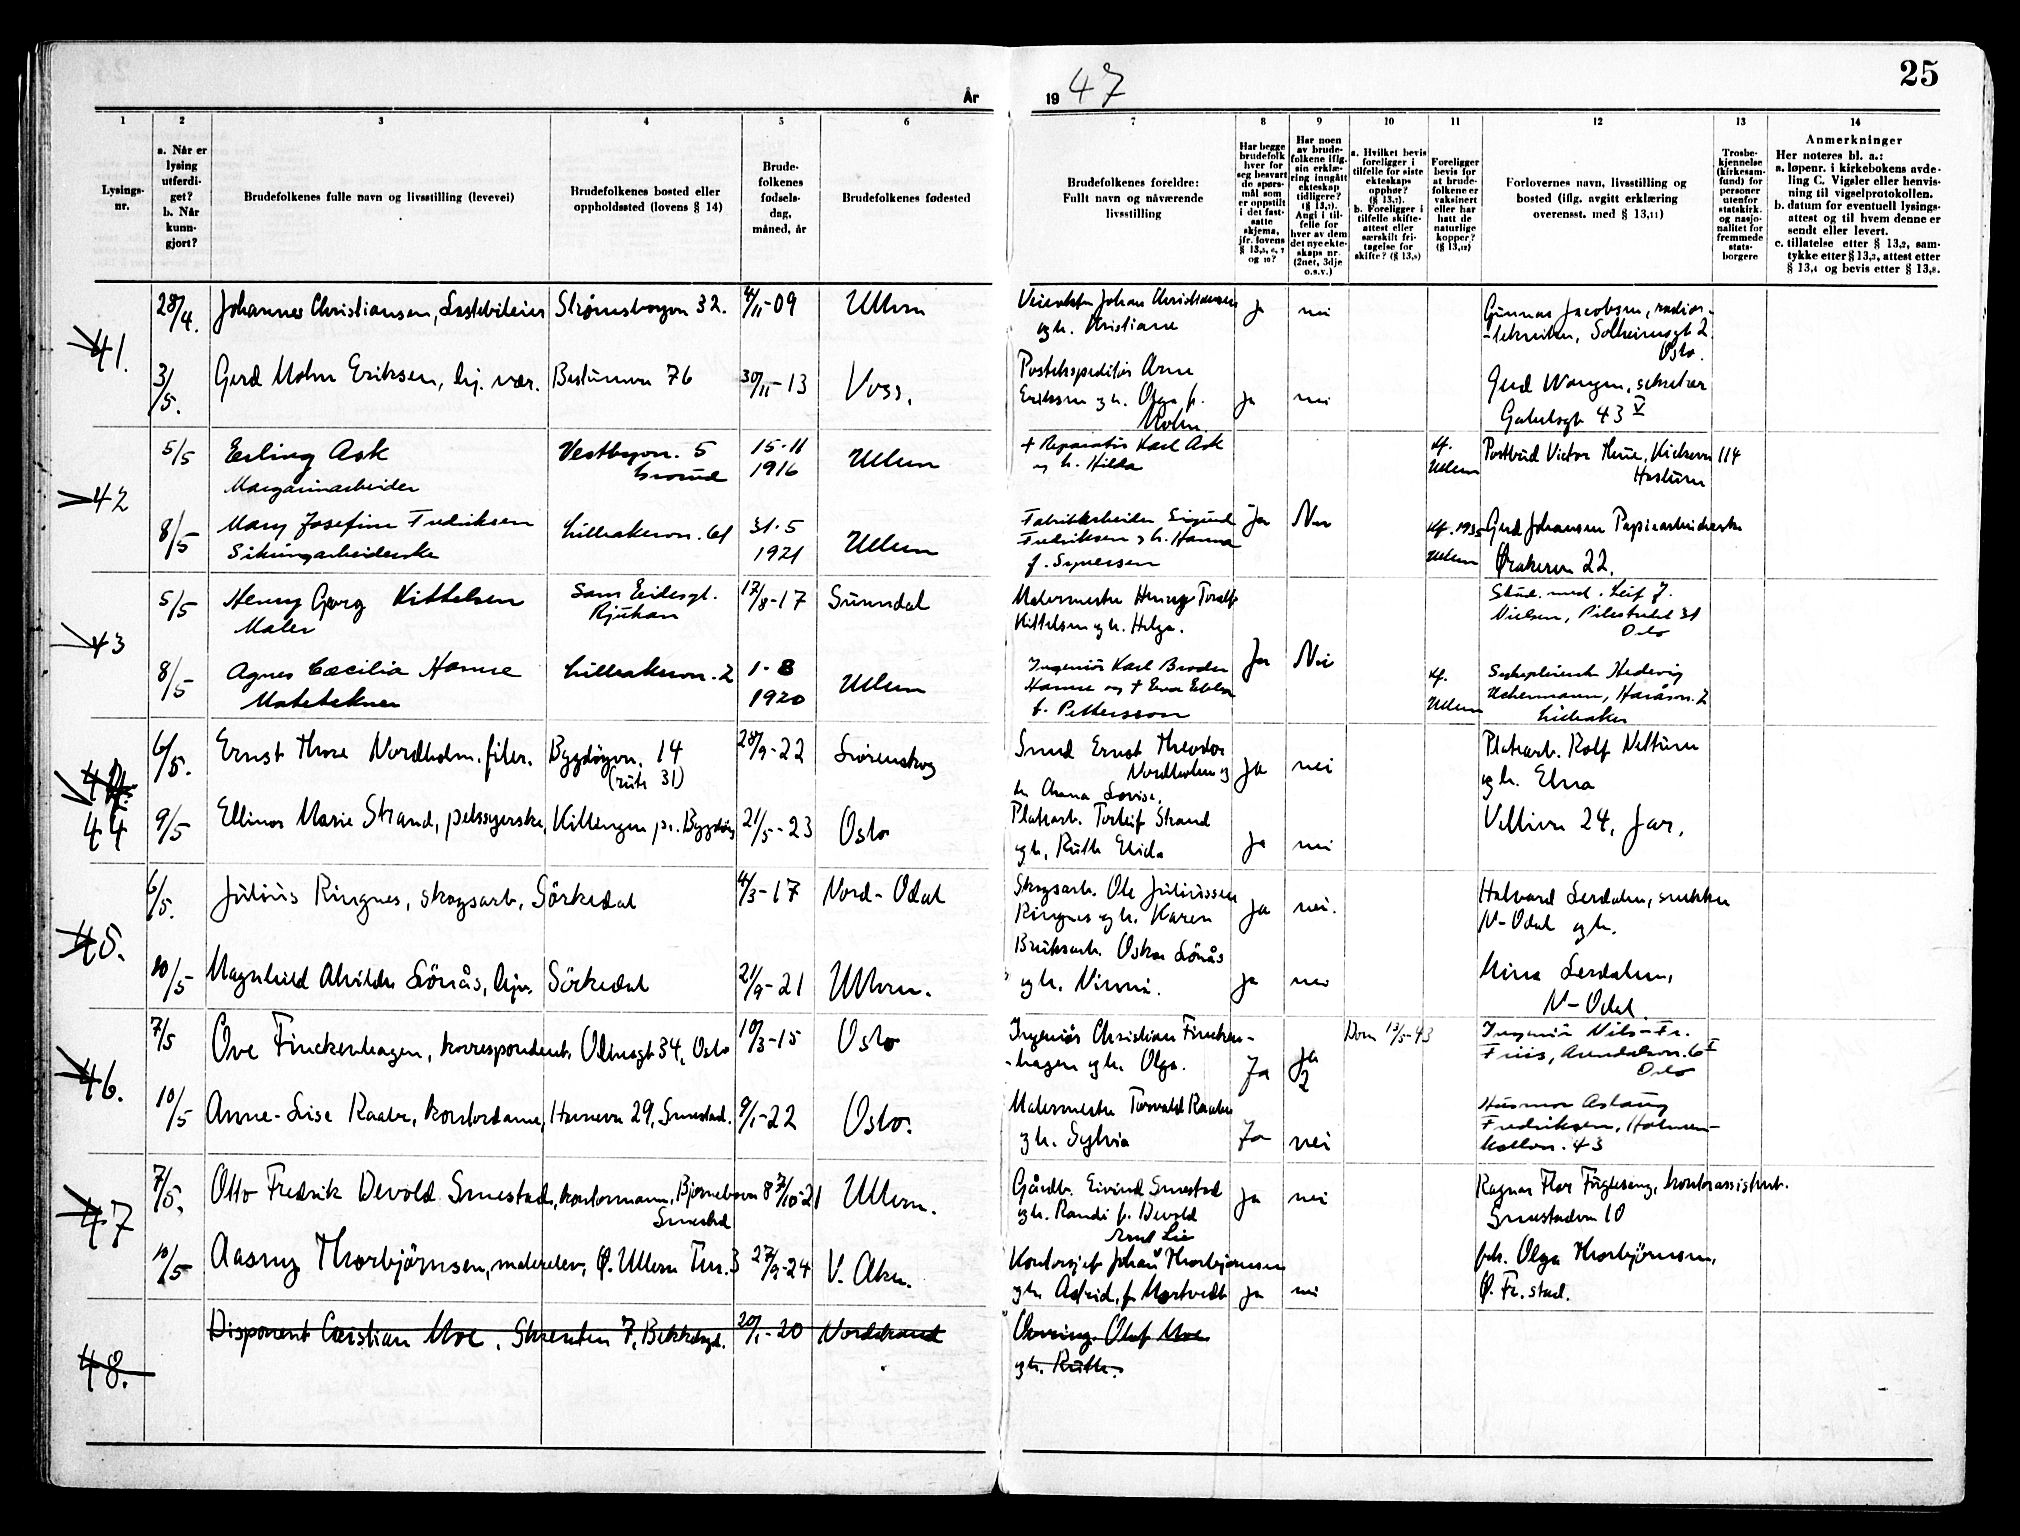 25
År
19 47
1
2
3
4
5
6
7
8
9
10
11
12
13
14
Lysings-
nr.
a. Når er
lysing
utferdi-
get?
b. Når
kunn-
gjort?
Brudefolkenes fulle navn og livsstilling (levevei)
Brudefolkenes bosted eller
oppholdssted (lovens § 14)
Brude-
folkenes
fødsels-
dag,
måned, år
Brudefolkenes fødested
Brudefolkenes foreldre:
Fullt navn og nåværende
livsstilling
Har begge
brudefolk
hver for
seg besvart
de spørs-
mål som
er oppstilt
i det fast-
satte
skjema,
jfr. lovens
§ 13,5, 6, 7
og 10?
Har noen
av brude-
folkene iflg.
sin erklæ-
ring inngått
ekteskap
tidligere?
(§ 13,7).
Angi i til-
felle for
hver av dem
det nye ekte-
skaps nr.
(2net, 3dje
o.s.v.)
a. Hvilket bevis
foreligger i
tilfelle for siste
ekteskaps
opphør?
(§ 13,7).
b. Foreligger i
tilfelle skifte-
attest eller
særskilt fri-
tagelse for
skifte? (§ 13,8)
Foreligger
bevis for
at brude-
folkene er
vaksinert
eller har
hatt de
naturlige
kopper?
(§ 13,12)
Forlovernes navn, livsstilling og
bosted (iflg. avgitt erklæring
overensst. med § 13,11)
Trosbe-
kjennelse
(kirkesam-
fund) for
personer
utenfor
statskirk.
og nasjo-
nalitet for
fremmede
stats-
borgere
Anmerkninger
Her noteres bl. a.:
a. løpenr. i kirkebokens avde-
ling C. Vigsler eller henvis-
ning til vigselprotokollen.
b. datum for eventuell lysings-
attest og til hvem denne er
sendt eller levert.
c. tillatelse etter § 13,2, sam-
tykke etter § 13,3, attest etter
§ 13,4 og bevis etter § 13,8.
41.
28/4.
Johannes Christiansen, Lastebileier
Strømsborgvn 32.
4/11-09
Ullern
Johan Christiansen
og h. Kristiane
Ja
nei
Gunnar Jacobsen, radio-
-tekniker, Solheimsgt 2
Oslo.
3/5.
Gerd Holm Eriksen, hj. vær.
Bestumvn 76
30/11-13
Voss.
Postekspeditør Arne
Eriksen og h. Olga f.
Holm.
Ja
nei
Gerd Wangen, sekretær
Gabelsgt 43 V
42
5/5
Erling Ask
Margarinarbeider
Vestbyvn. 5
Grorud
15-11
1916
Ullern
+ Reparatør Karl Ask
og h. Hilda
kf.
Ullern
Postbud Victor Thue, Kirkevn 114
Haslum
8/5
Mary Josefine Fredriksen
Sikringarbeiderske
Lilleakervn. 61
31-5
1921
Ullern
Fabrikkarbeider Sigurd
Fredriksen og h. Hanna
f. Syversen
Ja
Nei
kf. 1935
Ullern
Gerd Johansen Papirarbeiderske
Ørakervn 22.
43
5/5
Henry Georg Kittelsen
Maler
Sam Eidesgt.
Rjukan
17/8-17
Sunndal
Malermester Henry Toralf
Kittelsen og h. Helga.
Stud. med. Leif J.
Nielsen, Pilestredet 31
Oslo
8/5
Agnes Cæcilia Hamre
Lilleakervn. 2
1-8
1920
Ullern
Ingeniør Karl Broder
Hamre og + Eva Ebba
f. Pettersson
Ja
Nei
kf.
Ullern
Sykepleierske Hedevig
Uchermann, Haråsvn. 2
Lilleaker
44
6/5.
Ernst Thore Nordholm. filer.
Bygdøyvn. 14
(rute 31)
28/9-22
Lørenskog
Smed Ernst Theodor
Nordholm og
h. Anna Lovise.
Ja
nei
Platearb. Rolf Nettum
og h. Elna
9/5
Ellinor Marie Strand, pelssyerske,
Killingen pr. Bygdøy
21/5-23
Oslo
Platearb. Torleif Strand
og h. Ruth Elida
Ja
nei
Vellivn 24, Jar.
45.
6/5.
Julius Ringnes, skogsarb.
Sörkedal
4/3-17
Nord-Odal
Skogsarb. Ole Juliussen
Ringnes og h. Karen
Ja
nei.
Halvard Lerdalen, snekker
N-Odal og h.
10/5
Magnhild Alvilde Lönås, hjv.
Sörkedal
21/9-21
Ullern.
Bruksarb. Oskar Lönås
og h. Ninni.
Ja
nei
Mina Lerdalen,
N-Odal.
46.
7/5
Ove Finckenhagen, korrespondent,
Odinsgt 34, Oslo
10/3-15
Oslo
Ingeniør Christian Fincken-
-hagen og h. Olga.
Ja
Ja
2
Dom 13/5-43
Ingeniør Nils-Fr.
Friis, Arendalsvn. 6 I
Oslo
10/5
Anne-Lise Raabe, kontordame,
Hernevn 29, Smestad.
9/1-22
Oslo.
Malermester Torvald Raabe
og h. Sylvia
Ja
nei
Husmor Aslaug
Fredriksen, Holmen-
kollvn. 43
47
7/5.
Otto Fredrik Devold Smestad, kontormann,
Bjørnebovn 8
Smestad
7/10-21
Ullern.
Gårdbr. Eivind Smestad
og h. Randi f. Devold
Ja
nei
Ragnar Thor Fuglesang, kontorassistent.
Smestadvn 10
10/5
Aasny Thorbjörnsen, malerelev,
Ø. Ullern Terr. 3
27/9-24
V. Aker.
Kontorsjef Johan Thorbjørnsen
og h. Astrid, f. Mortvedt
Ja
nei
frk. Olga Thorbjörnsen,
Ø. Fr. stad.
48.
Disponent Cristian Moe.
Skrenten 7, Bekkelagd.
20/1-20
Nordstrand
Olaf Moe
og h. Ruth.